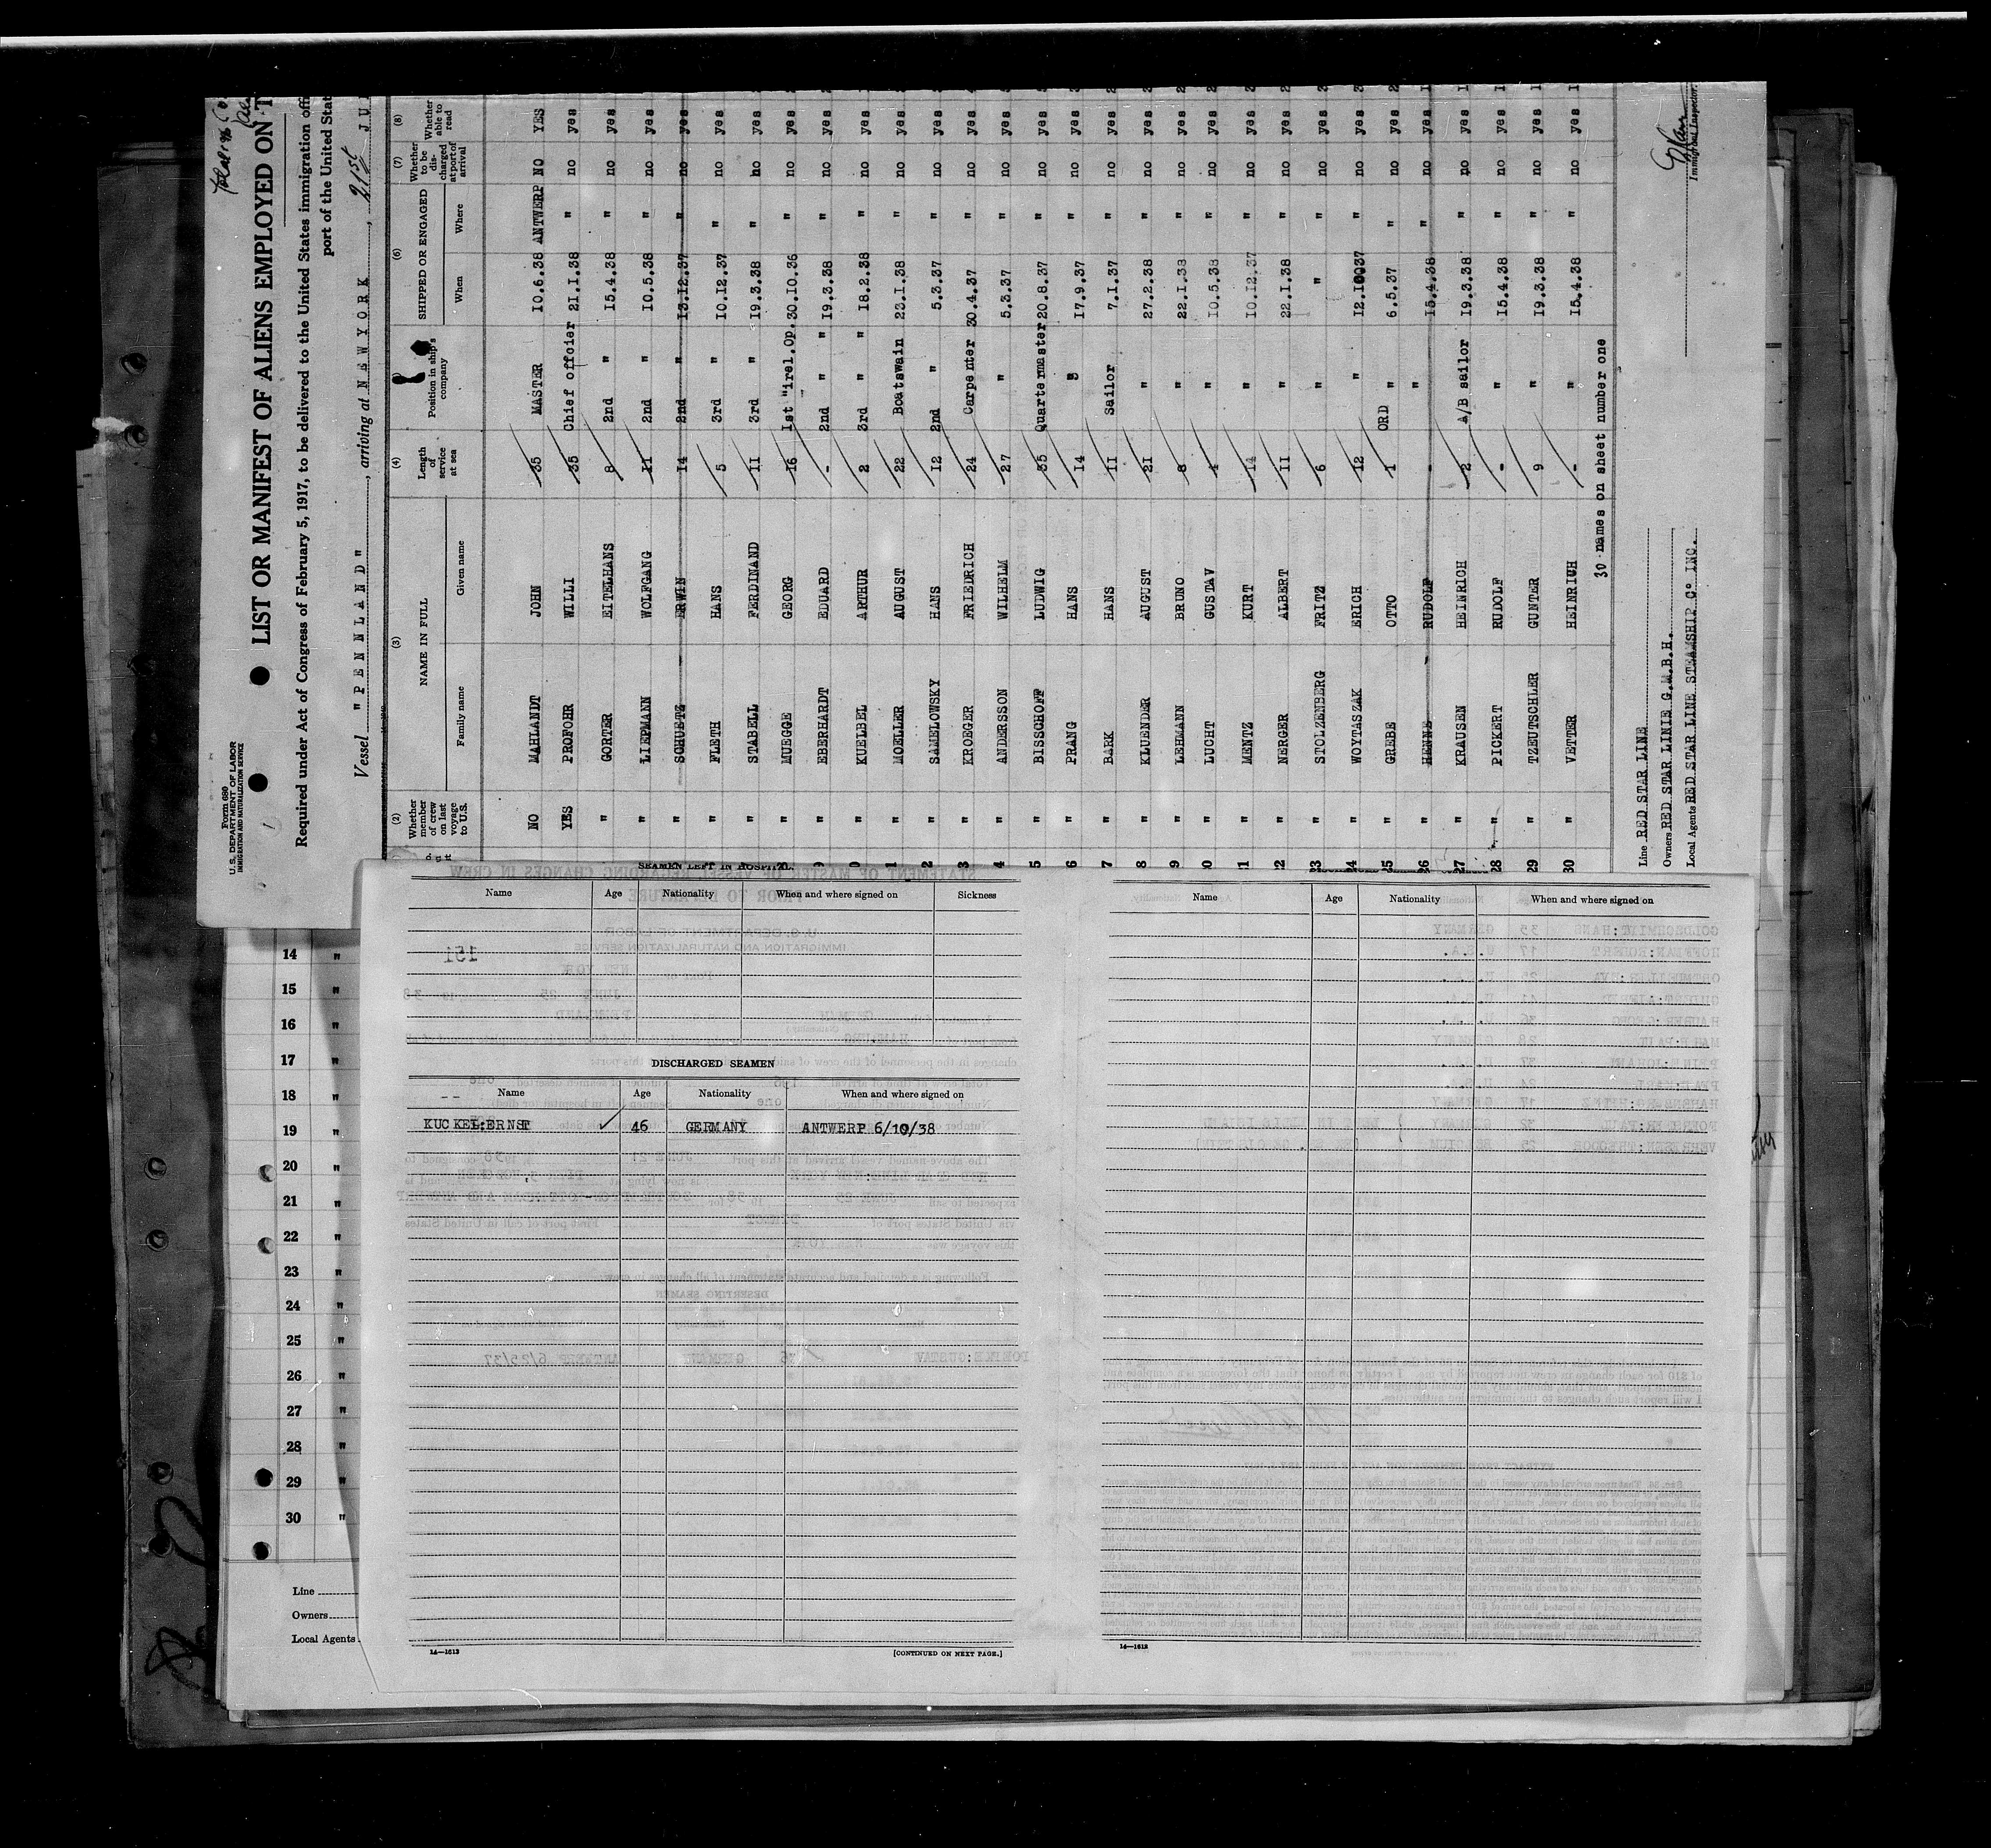 Form 689
U. S. DEPARTMENT OF LABOR
IMMIGRATION AND NATURALIZATION SERVICE
LIST OR MANIFEST OF ALIENS EMPLOYED ON T
Required under Act of Congress of February 5, 1917, to be delivered to the United States immigration offi
port of the United Stat
Vessel "PENNLAND", arriving at NEWYORK, 21st JU
(2) (3) (4) (6) (7) (8)
Whether member of crew on last voyage to U.S. NAME IN FULL Family name Given name Length of service at sea Position in ship's company SHIPPED OR ENGAGED When Where Whether to be discharged at port of arrival Whether able to read
NO MAHLANDT JOHN 35 MASTER 10.6.38 ANTWERP NO YES
YES PROFOHR WILLI 35 Chief offcier 21.1.38 " no yes
" GORTER EITELHANS 8 2nd " 15.4.38 " no yes
" LIEPMANN WOLFGANG 11 2nd " 10.5.38 " no yes
" SCHUETZ ERWIN 14 2nd " 13.12.37 " no yes
" FLETH HANS 5 3rd " 10.12.37 " no yes
" STABELL FERDINAND 11 3rd " 19.3.38 " no yes
" MUEGGE GEORG 16 1st "irel.Op. 30.10.36 " no yes
9 " EBERHARDT EDUARD - 2nd " " 19.3.38 " no yes
0 " KUELBEL ARTHUR 2 3rd " " 18.2.38 " no yes
1 " MOELLER AUGUST 22 Boatswain 22.1.38 " no yes
2 " SAMELOWSKY HANS 12 2nd " 5.3.37 " no yes
3 " KROEGER FRIEDRICH 24 Carpenter 30.4.37 " no yes
4 " ANDERSSON WILHELM 27 " 5.3.37 " no yes
5 " BISSCHOFF LUDWIG 35 Quartermaster 20.8.37 " no yes
6 " PRANG HANS 14 " 17.9.37 " no yes
7 " BARK HANS 11 Sailor 7.1.37 " no yes
8 " KLUENDER AUGUST 21 " 27.2.38 " no yes
9 " LEHMANN BRUNO 8 " 22.1.38 " no yes
0 " LUCHT GUSTAV 4 " 10.5.38 " no yes
11 " MENTZ KURT 14 " 10.12.37 " no yes
22 " NERGER ALBERT 11 " 22.1.38 " no yes
23 " STOLZENBERG FRITZ 6 " " " no yes
24 " WOYTASZAK ERICH 12 " 12.1037 " no yes
25 " GREBE OTTO 1 ORD " 6.5.37 " no yes
26 " HENNE RUDOLF - " 15.4.38 " no yes
27 " KRAUSEN HEINRICH 2 A/B sailor 19.3.38 " no yes
28 " PICKERT RUDOLF - " 15.4.38 " no yes
29 " TZEUTSCHLER GUNTER 9 " 19.3.38 " no yes
30 " VETTER HEINRICH - " 15.4.38 " no yes
30 names on sheet number one
Line RED STAR LINE
Owners RED STAR LINIE G.M.B.H.
Local Agents RED STAR LINE STEAMSHIP Co INC.
Immigrant Inspector.
SEAMEN LEFT IN HOSPITAL
Name Age Nationality When and where signed on Sickness
DISCHARGED SEAMEN
Name Age Nationality When and where signed on
KUCKEL:ERNST ✓ 46 GERMANY ANTWERP 6/10/38
14—1613
[CONTINUED ON NEXT PAGE.]
Name Age Nationality When and where signed on
14—1613
14 "
15 "
16 "
17 "
18 "
19 "
20 "
21 "
22 "
23 "
24 "
25 "
26 "
27 "
28 "
29 "
30 "
Line
Owners
Local Agents